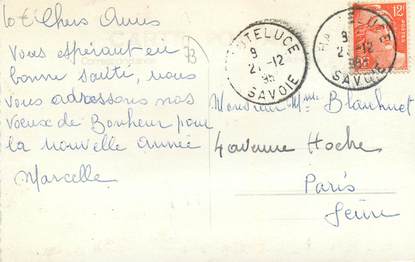 Chers Amis
Vous espérant en
bonne santé, nous
vous adressons nos
voeux de Bonheur pour
la nouvelle année
Marcelle
73
HAUTELUCE
9
12
SAVOIE
HAUTELUCE
9
12
SAVOIE
12F
Monsieur Mme Blanhuet
4 avenue Hoche
Paris
Seine